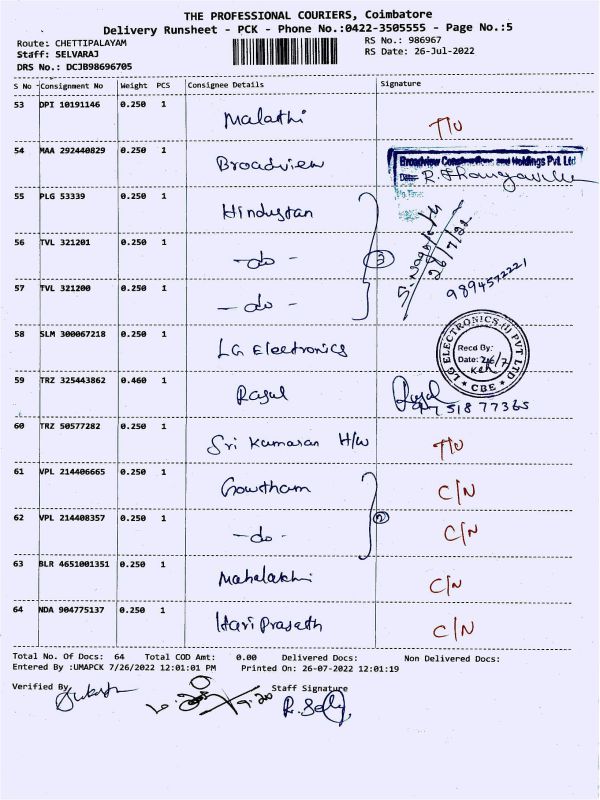 THE PROFESSIONAL COURIERS, Coimbatore
Delivery Runsheet - PCK - Phone No.:0422-3505555 - Page No.:5
Route: CHETTIPALAYAM RS No.: 986967
Staff: SELVARAJ RS Date: 26-Jul-2022
DRS No.: DCJB98696705
S No Consignment No Weight PCS Consignee Details Signature
53 DPI 10191146 0.250 1 Malathi T/U
54 MAA 292440829 0.250 1 Broadview Broadview Constructions and Holdings Pvt. Ltd
Date R. Thangavelu
55 PLG 53339 0.250 1 Hindustan
56 TVL 321201 0.250 1 -do- 3 26/7/22
57 TVL 321200 0.250 1 -do- 9894572221
58 SLM 300067218 0.250 1 LG Electronics LG ELECTRONICS (I) PVT LTD
Recd By:
Date: 26/7
CBE
59 TRZ 325443862 0.460 1 Rasul
518 77365
60 TRZ 50577282 0.250 1 Sri Kumaran H/W T/U
61 VPL 214406665 0.250 1 Gowtham C/N
62 VPL 214408357 0.250 1 -do- 2 C/N
63 BLR 4651001351 0.250 1 Mahalakhi C/N
64 NDA 904775137 0.250 1 Hari Prasath C/N
Total No. Of Docs: 64 Total COD Amt: 0.00 Delivered Docs: Non Delivered Docs:
Entered By :UMAPCK 7/26/2022 12:01:01 PM Printed On: 26-07-2022 12:01:19
Verified By Staff Signature